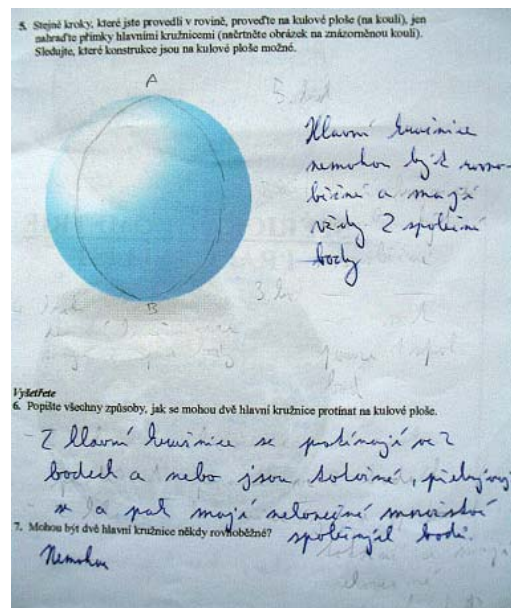 5. Stejné kroky, které jste provedli v rovině, proveďte na kulové ploše (na kouli), jen
nahraďte přímky hlavními kružnicemi (načrtněte obrázek na znázorněnou kouli).
Sledujte, které konstrukce jsou na kulové ploše možné.
A
Hlavní kružnice
nemohou být rovno-
běžné a mají
vždy 2 společné
body
B
Vyšetřete
6. Popište všechny způsoby, jak se mohou dvě hlavní kružnice protínat na kulové ploše.
2 hlavní kružnice se protínají ve 2
bodech a nebo jsou totožné, překrývají
se a pak mají nekonečné množství
7. Mohou být dvě hlavní kružnice někdy rovnoběžné? společných bodů.
Nemohou